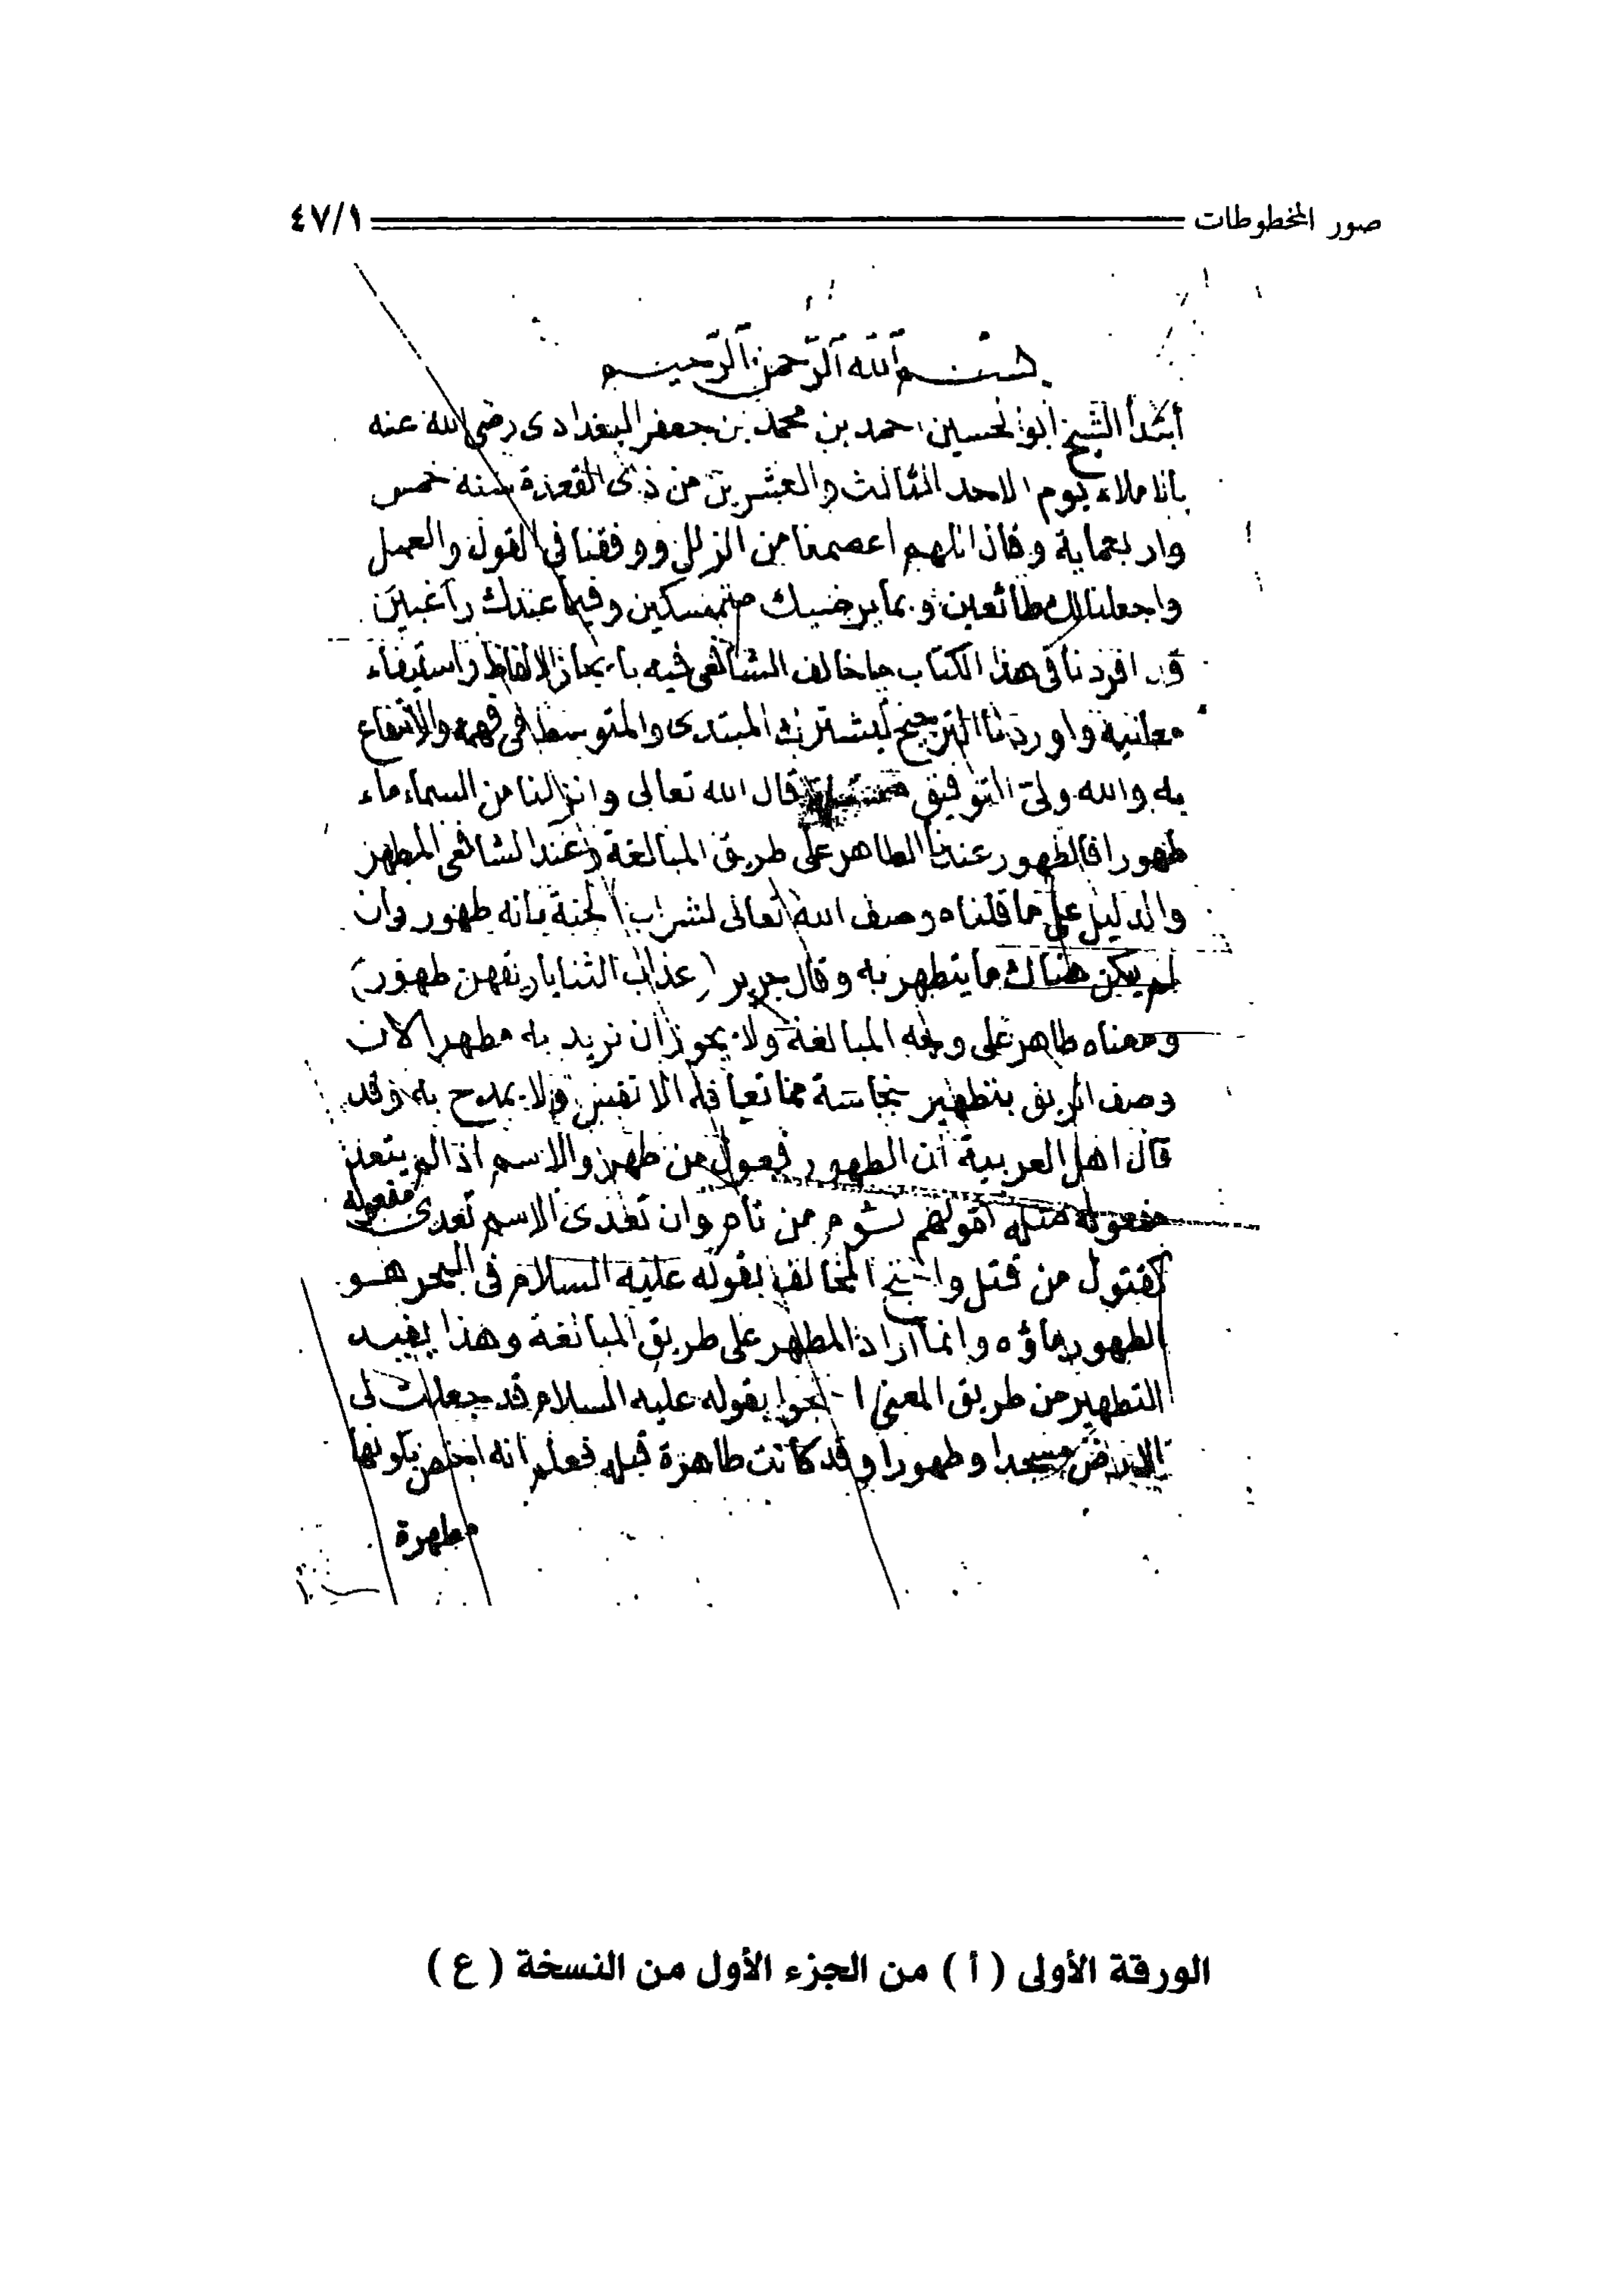 صور المخطوطات ٤٧/١
بسم الله الرحمن الرحيم
أبتدأ الشيخ ابو الحسين احمد بن محمد بن جعفر البغدادى رضى الله عنه
باملاء يوم الاحد الثالث والعشرين من ذى القعدة سنة خمس
واربعماية وقال اللهم اعصمنا من الزلل ووفقنا فى القول والعمل
واجعلنا لك طائعين وبما يرضيك متمسكين وفيما عندك راغبين
قد افردنا فى هذا الكتاب ما خالف الشافعى فيه بايجاز الالفاظ واستيفاء
معانيه واوردنا الترجيح ليشترك المبتدى والمتوسط فى فهمه والانتفاع
به والله ولى التوفيق قال الله تعالى وانزلنا من السماء ماء
طهورا فالطهور عندنا الطاهر على طريق المبالغة وعند الشافعى المطهر
والدليل على ما قلناه وصف الله تعالى لشراب الجنة بانه طهور وان
لم يكن هناك ما يتطهر به وقال جرير (عذاب الثنايا ريقهن طهور)
ومعناه طاهر على وجه المبالغة ولا يجوز ان نريد به مطهر الان
وصف الريق بتطهير نجاسة مما تعافه الانفس ولا يمدح به وقد
قال اهل العربية ان الطهور فعول من طهر والاسم اذا لم يتعد
مفعوله مثله قولهم نئوم من نام وان تعدى الاسم تعدى مفعوله
كقتول من قتل واحتج المخالف بقوله عليه السلام فى البحر هو
الطهور ماؤه وانما اراد المطهر على طريق المبالغة وهذا يفيد
التطهير من طريق المعنى احتجوا بقوله عليه السلام قد جعلت لى
الارض مسجدا وطهورا وقد كانت طاهرة قبله فعلم انه اختص بكونها
مطهرة
الورقة الأولى ( أ ) من الجزء الأول من النسخة ( ع )